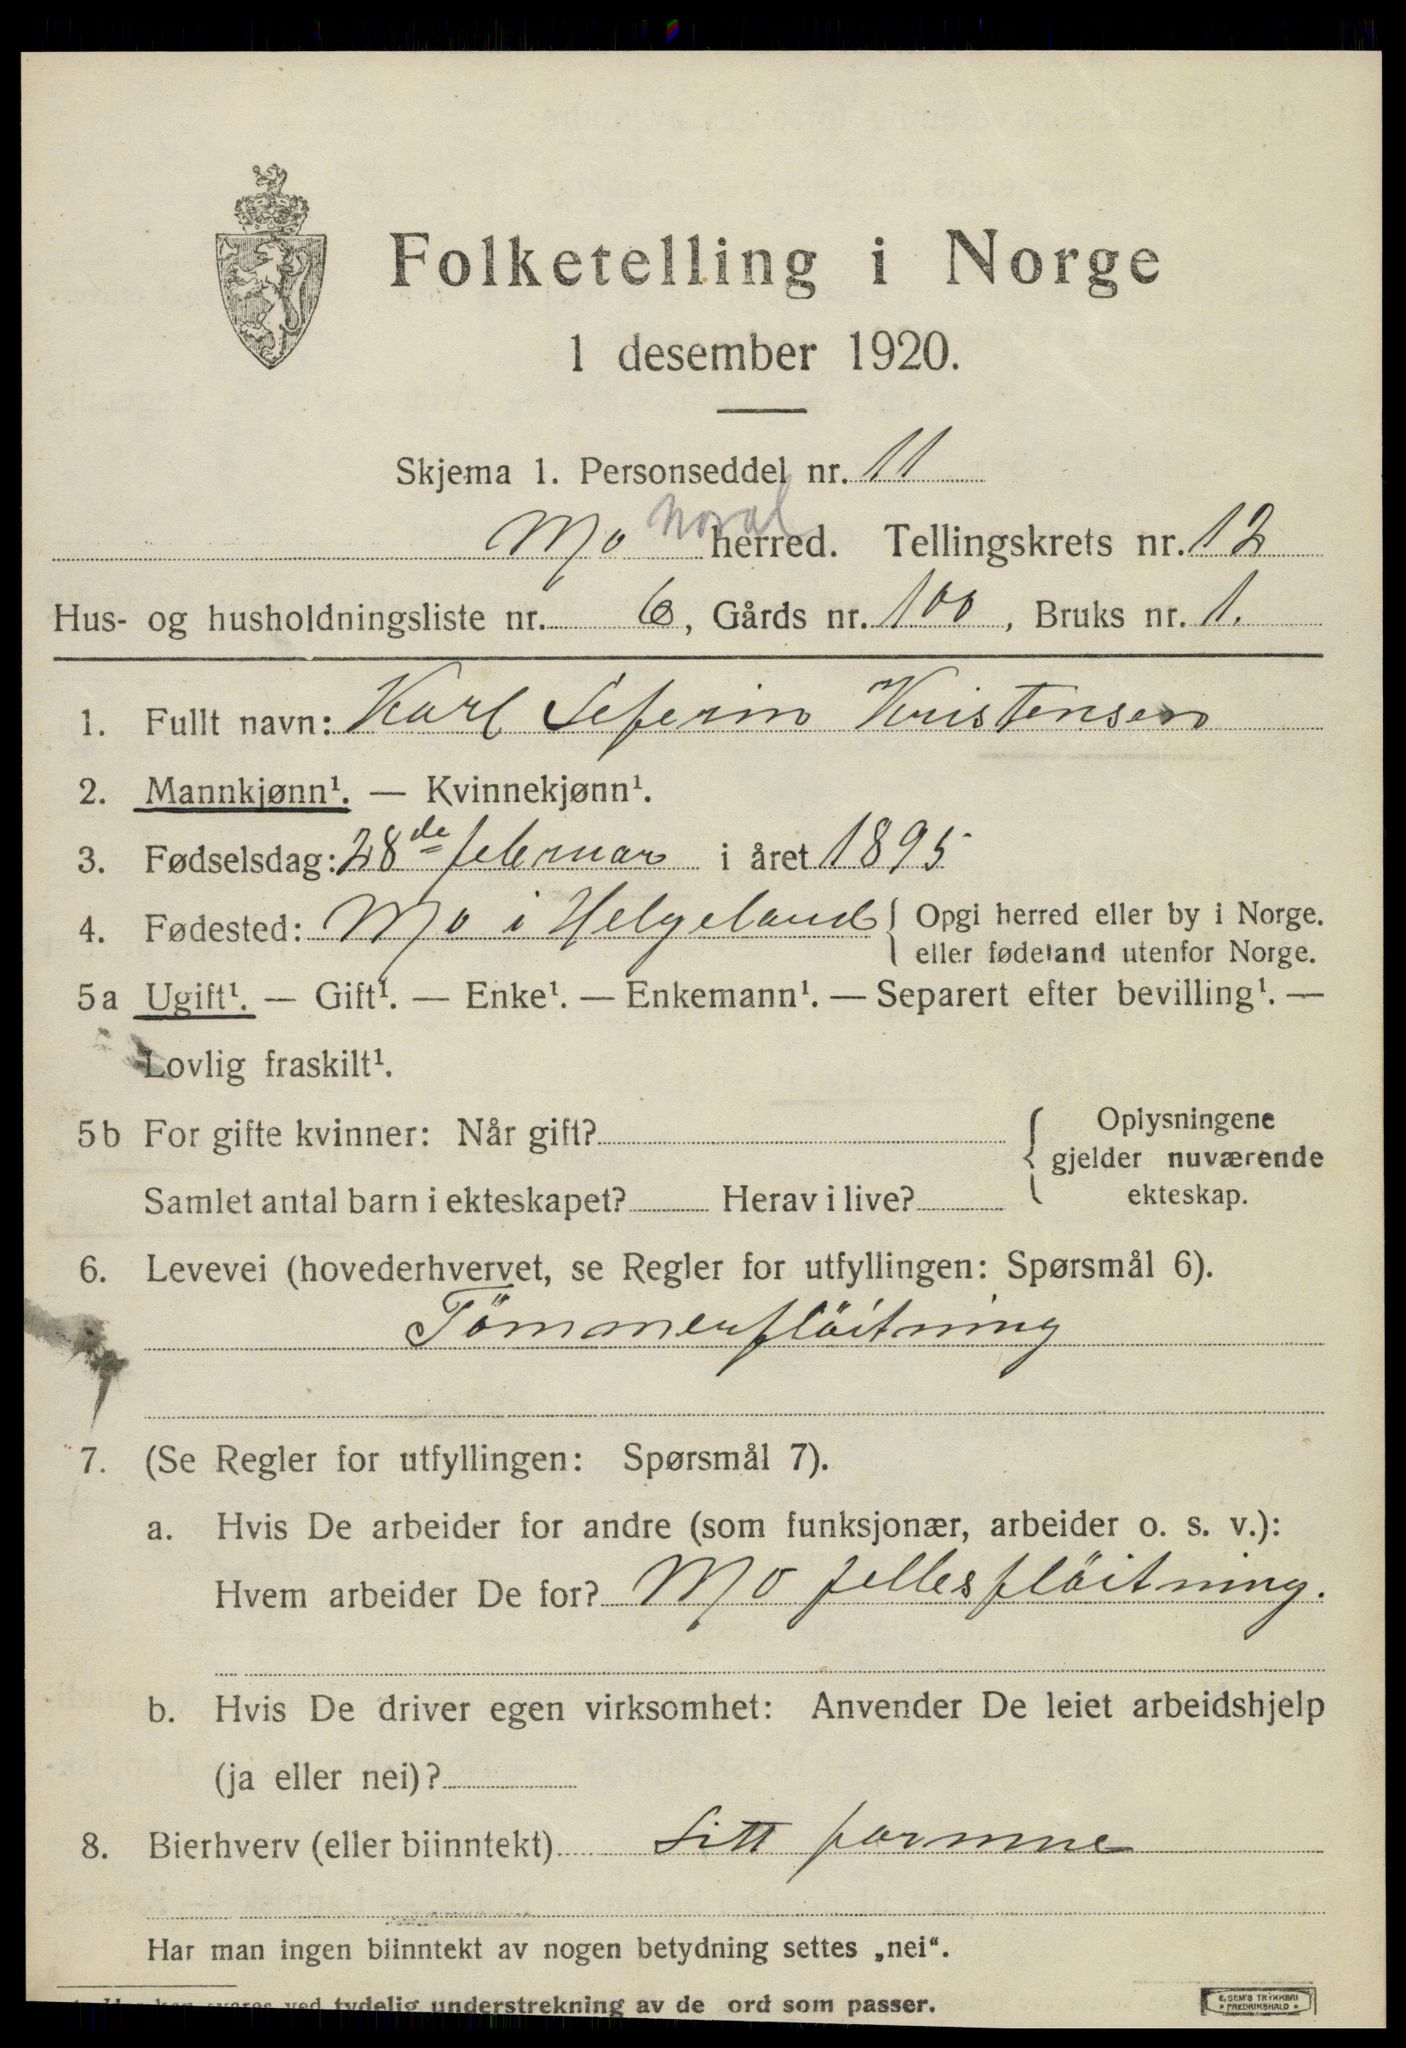 Folketelling i Norge
1 desember 1920.
Skjema 1. Personseddel nr. 11
Mo herred. Tellingskrets nr. 12
Hus- og husholdningsliste nr. 6, Gårds nr. 100, Bruks nr. 1.
1. Fullt navn: Karl Seferin Kristensen
2. Mannkjønn¹. — Kvinnekjønn¹.
3. Fødselsdag: 28de februar i året 1895
4. Fødested: Mo i Helgeland { Opgi herred eller by i Norge.
eller fødeland utenfor Norge.
5a Ugift¹. — Gift¹. — Enke¹. — Enkemann¹. — Separert efter bevilling¹. —
Lovlig fraskilt¹.
5b For gifte kvinner: Når gift?
Samlet antal barn i ekteskapet? Herav i live?
{ Oplysningene
gjelder nuværende
ekteskap.
6. Levevei (hovederhvervet, se Regler for utfyllingen: Spørsmål 6).
Tömmerflöitning
7. (Se Regler for utfyllingen: Spørsmål 7).
a. Hvis De arbeider for andre (som funksjonær, arbeider o. s. v.):
Hvem arbeider De for? Mo fellesflöitning.
b. Hvis De driver egen virksomhet: Anvender De leiet arbeidshjelp
(ja eller nei)?
8. Bierhverv (eller biinntekt) Litt formue
Har man ingen biinntekt av nogen betydning settes „nei“.
ved tydelig understrekning av de ord som passer.
E. SEM'S TRYKKERI
• FREDRIKSHALD •